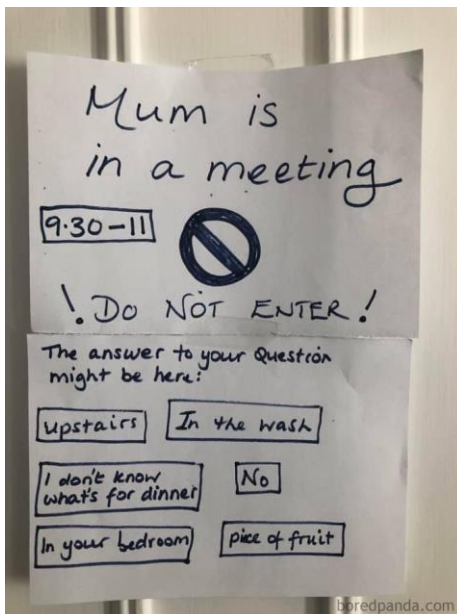 Mum is
in a meeting
9.30-11
! DO NOT ENTER !
The answer to your Question
might be here:
upstairs
In the wash
I don't know
what's for dinner
No
In your bedroom
pice of fruit
boredpanda.com